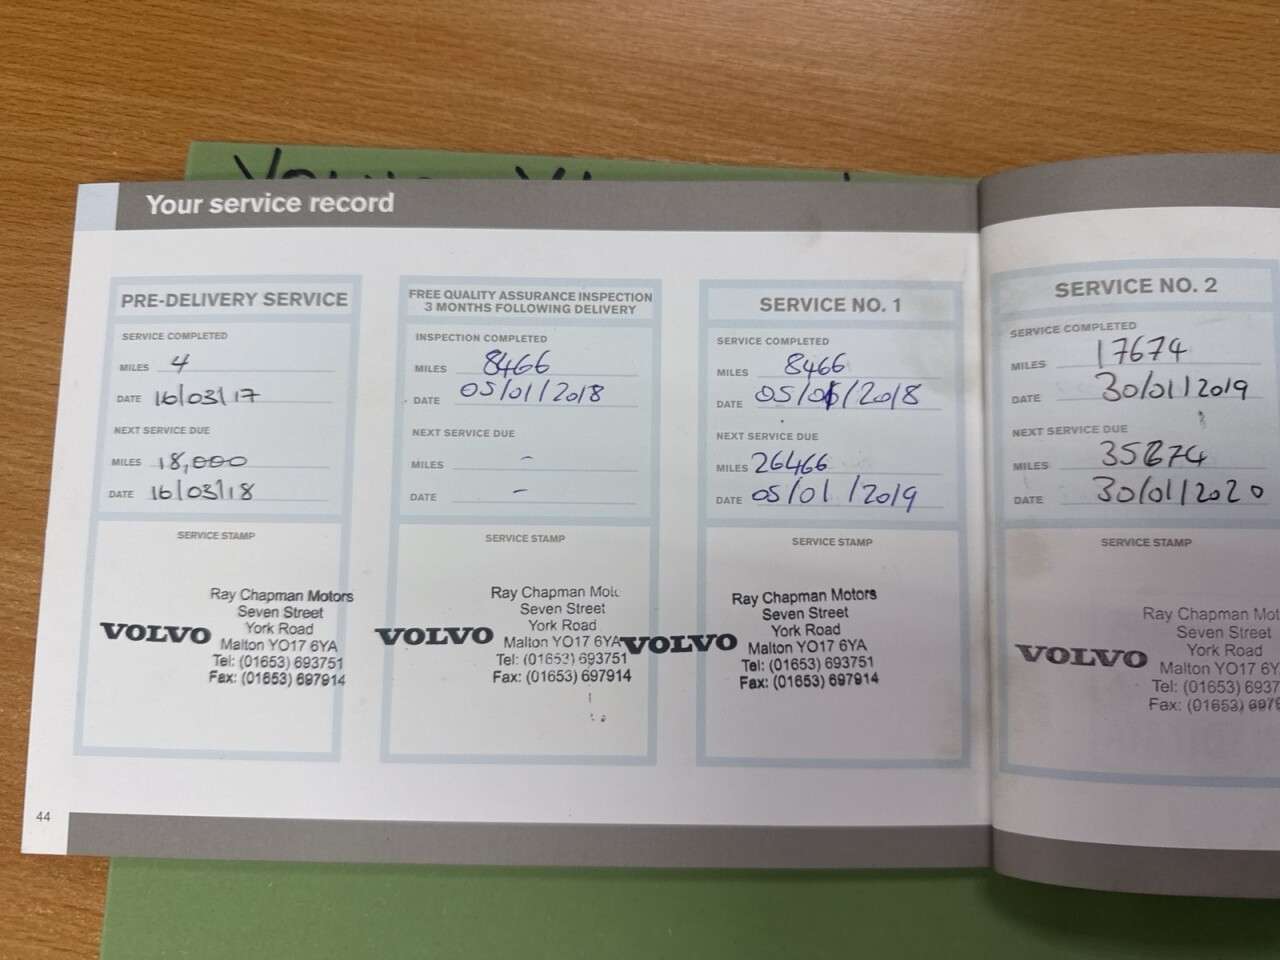 Your service record
PRE-DELIVERY SERVICE
SERVICE COMPLETED
MILES 4
DATE 16/03/17
NEXT SERVICE DUE
MILES 18,000
DATE 16/03/18
SERVICE STAMP
VOLVO
Ray Chapman Motors
Seven Street
York Road
Malton YO17 6YA
Tel: (01653) 693751
Fax: (01653) 697914
FREE QUALITY ASSURANCE INSPECTION
3 MONTHS FOLLOWING DELIVERY
INSPECTION COMPLETED
MILES 8466
DATE 05/01/2018
NEXT SERVICE DUE
MILES -
DATE -
SERVICE STAMP
VOLVO
Ray Chapman Mot
Seven Street
York Road
Malton YO17 6YA
Tel: (01653) 693751
Fax: (01653) 697914
SERVICE NO. 1
SERVICE COMPLETED
MILES 8466
DATE 05/01/2018
NEXT SERVICE DUE
MILES 26466
DATE 05/01/2019
SERVICE STAMP
VOLVO
Ray Chapman Motors
Seven Street
York Road
Malton YO17 6YA
Tel: (01653) 693751
Fax: (01653) 697914
SERVICE NO. 2
SERVICE COMPLETED
MILES 17674
DATE 30/01/2019
NEXT SERVICE DUE
MILES 35674
DATE 30/01/2020
SERVICE STAMP
VOLVO
Ray Chapman Mot
Seven Street
York Road
Malton YO17 6Y
Tel: (01653) 6937
Fax: (01653) 697
44